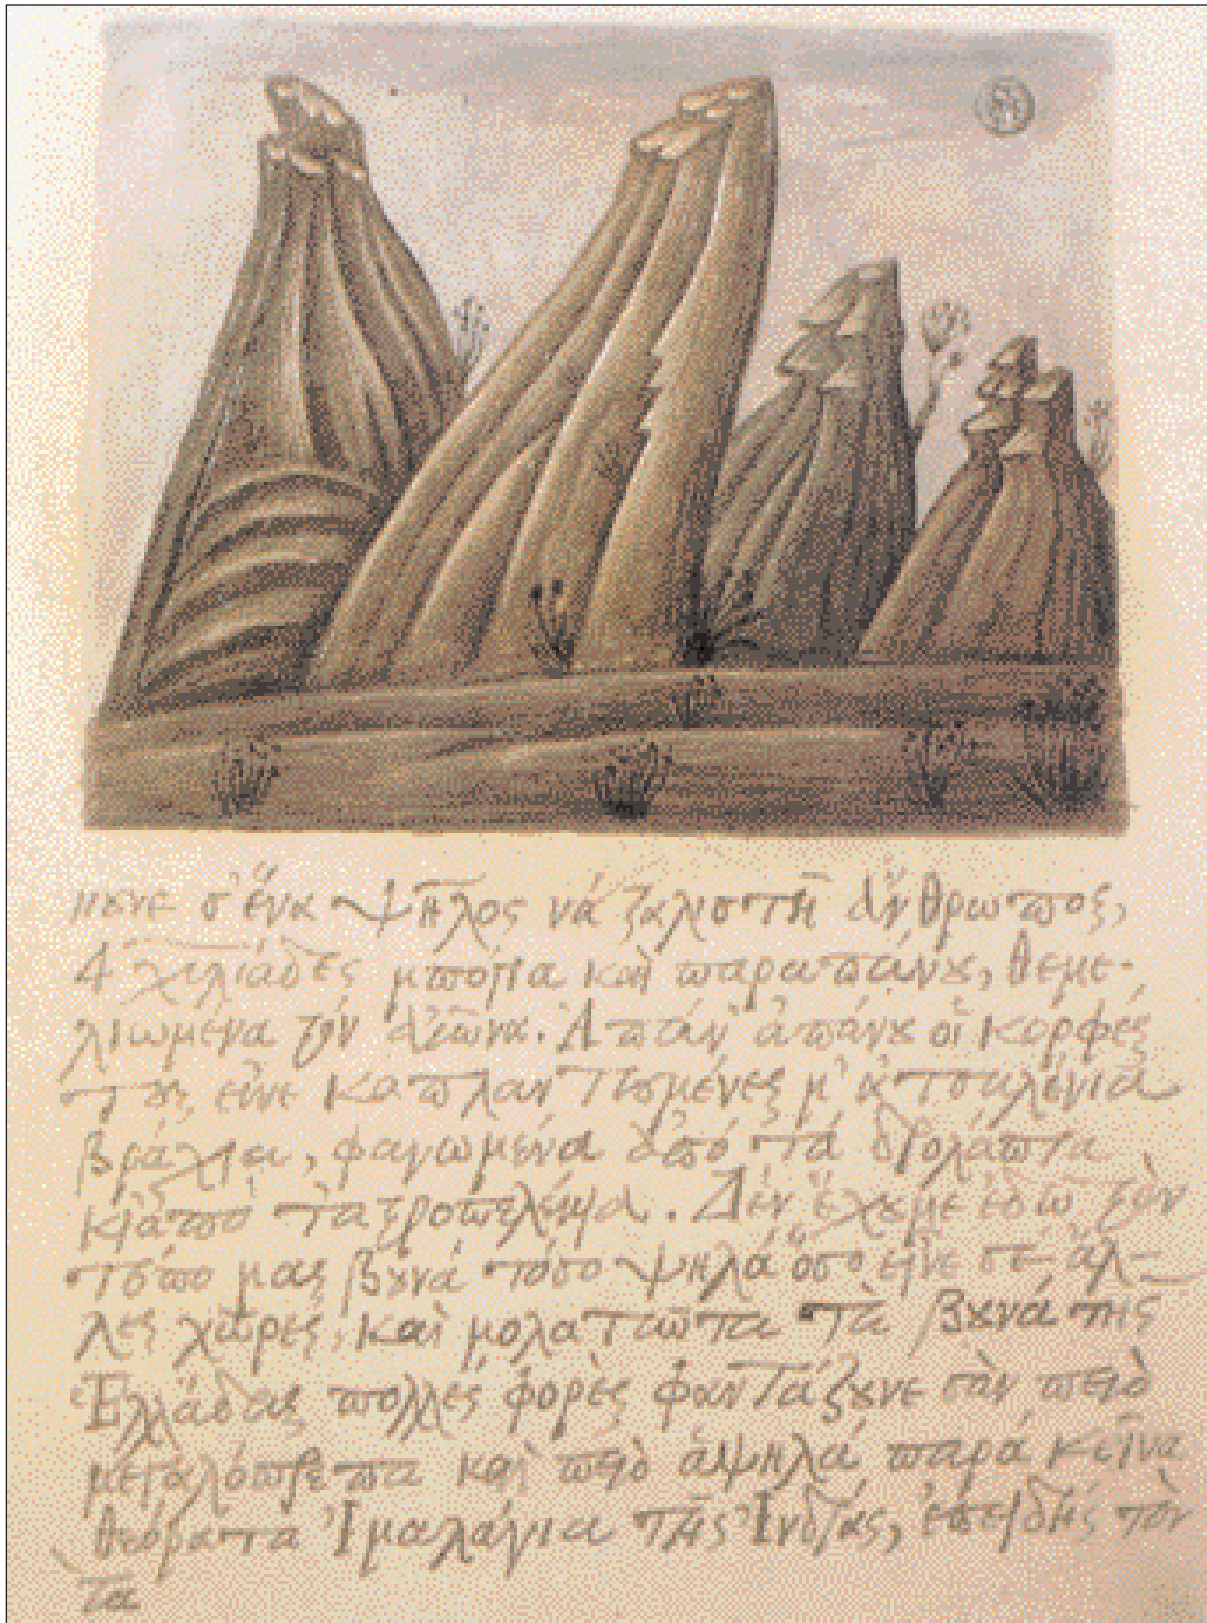 σ' ἕνα ψῆλος νά ζαλιστῆ ἄνθρωπος,
4 χιλιάδες μπόγια καὶ παραπάνω, θεμε-
λιωμένα τὸν αἰῶνα. Ἀπάν' ἀπάνω οἱ κορφές
τους εἶνε καπλαντισμένες μ' ἀτσαλένια
βράχια, φαγωμένα ἀπό τά δρολάπια
κι' ἀπὸ τὰ ἀστροπελέκια. Δὲν ἔχουμε ἐδῶ στὸν
τόπο μας βουνά τόσο ψηλά ὅσο εἶνε σὲ ἄλ-
λες χῶρες, καὶ μολαταῦτα τὰ βουνά τῆς
Ἑλλάδας πολλές φορὲς φαντάζουνε σὰν πειὸ
μεγαλόπρεπα καὶ πειὸ ἁψηλά παρά κεῖνα
θεόρατα Ἰμαλάγια τῆς Ἰνδίας, ἐπειδής
τα